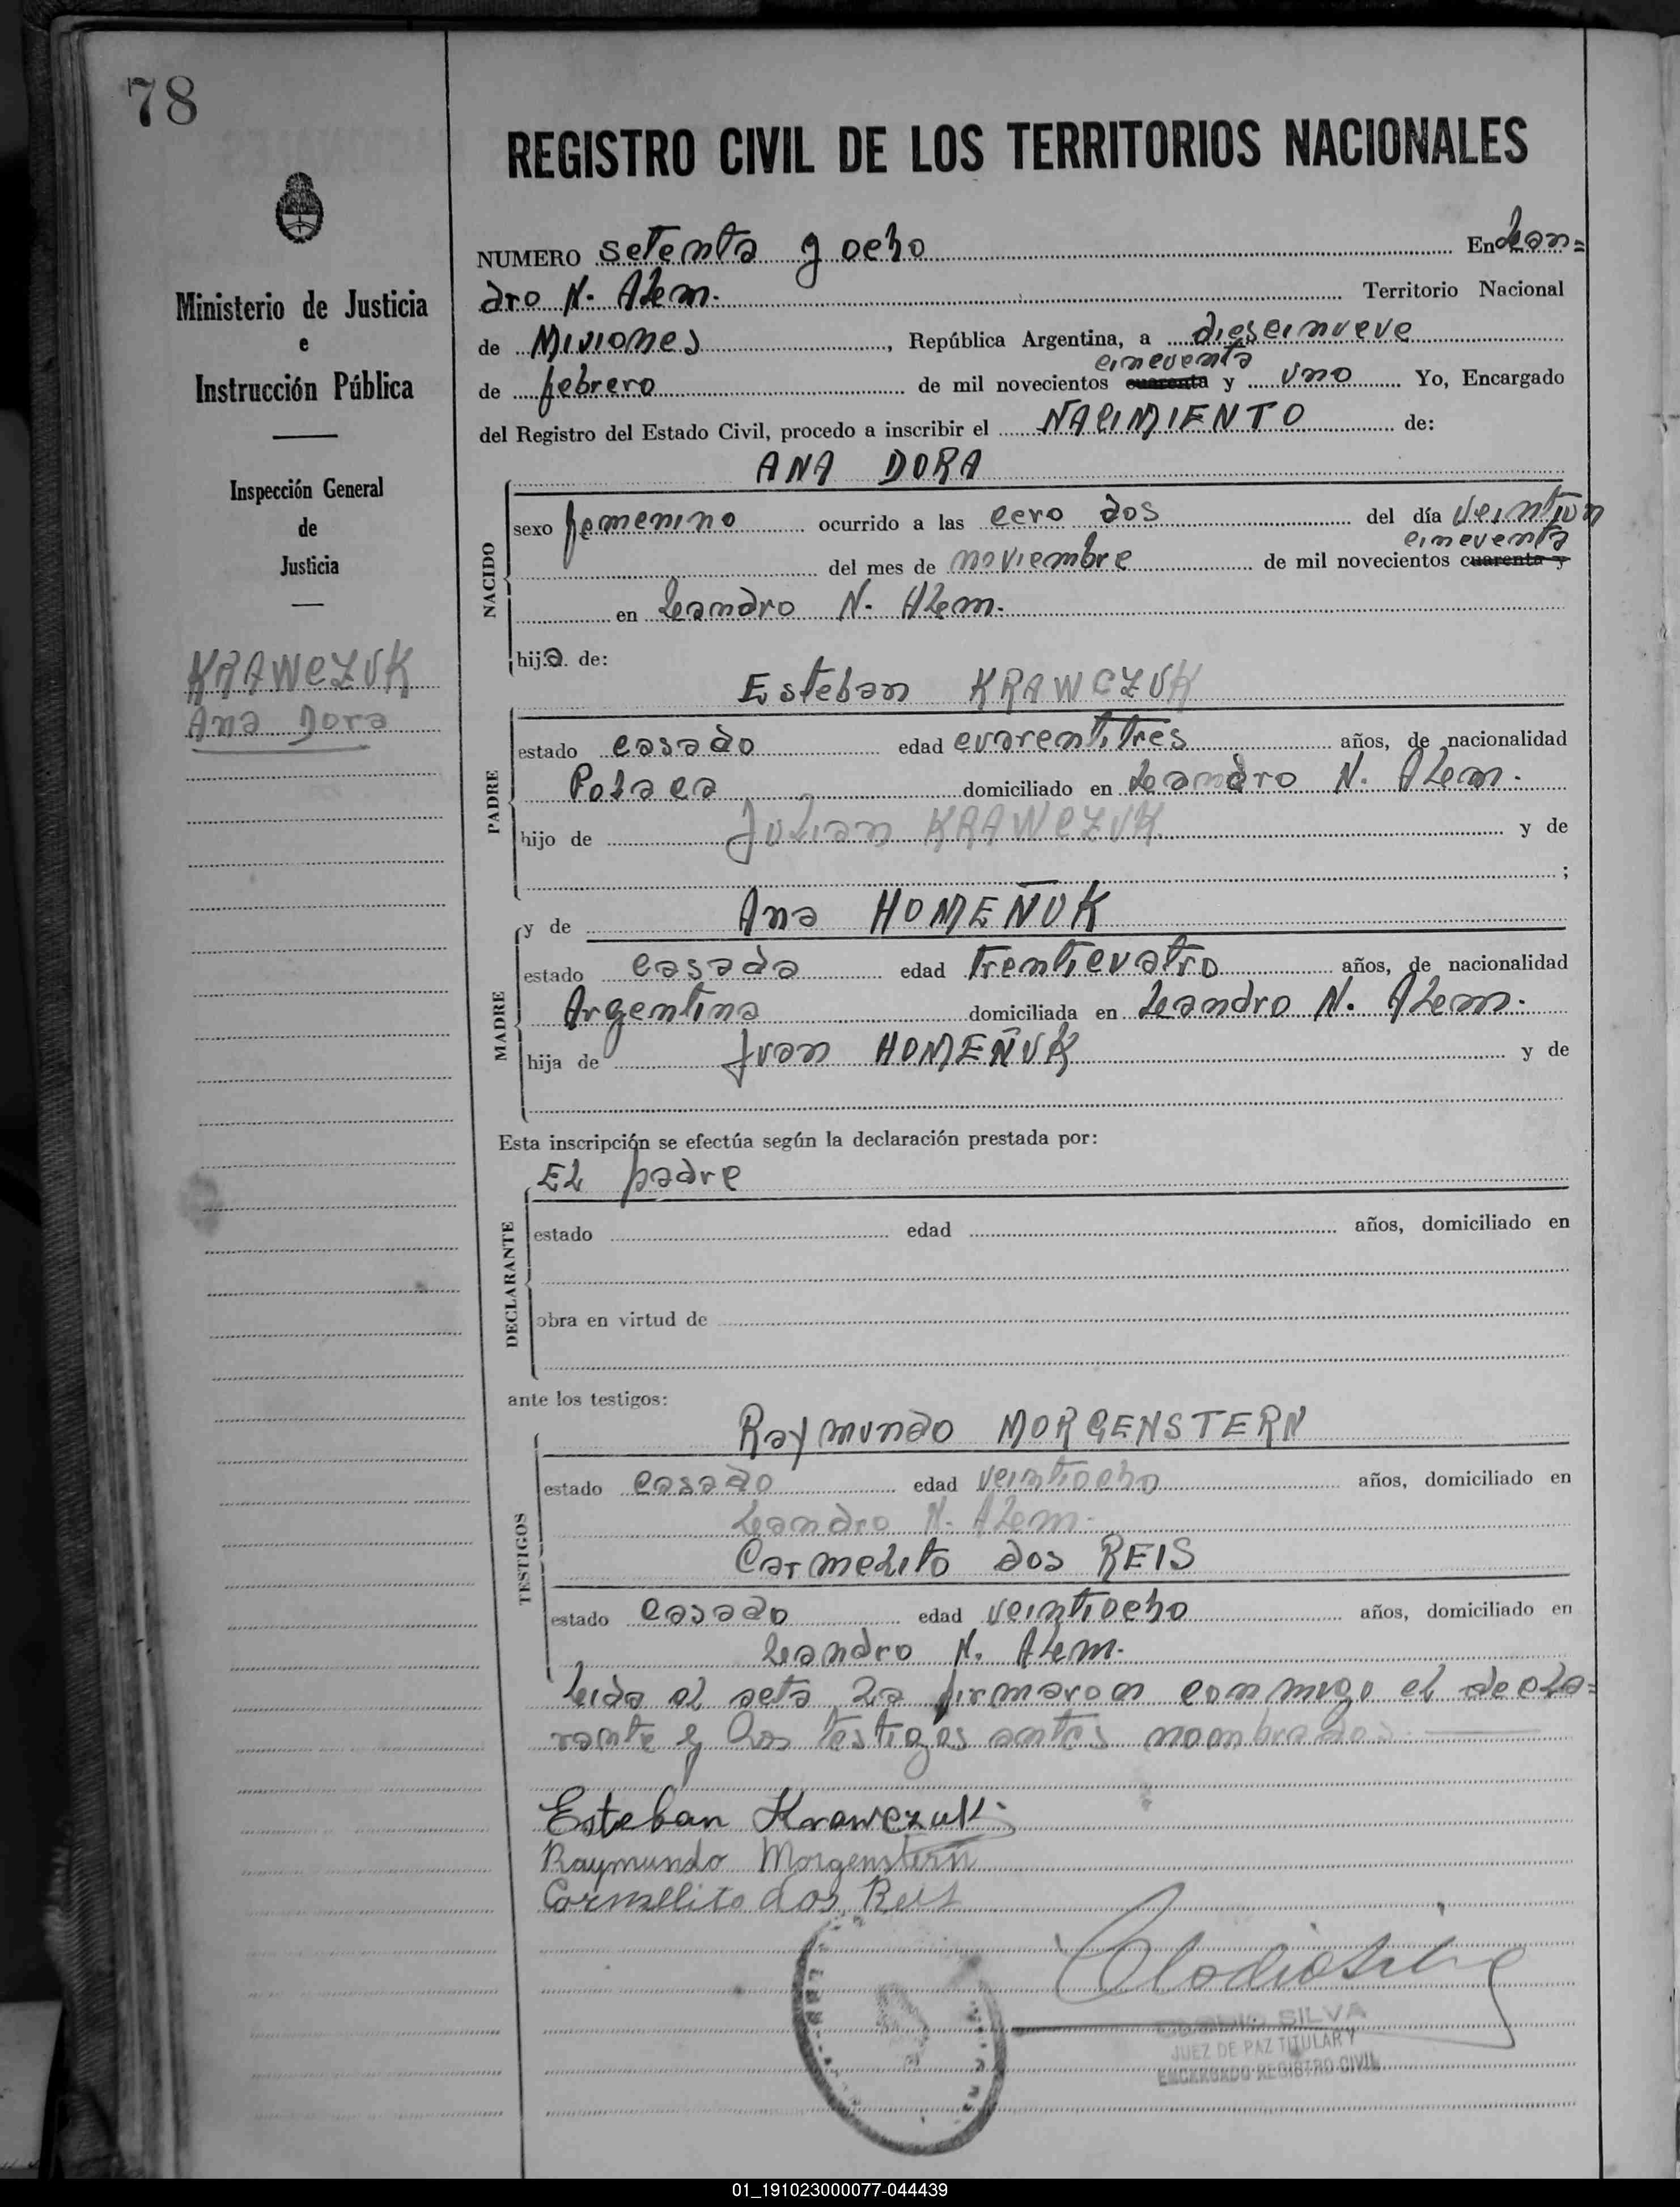 78
REGISTRO CIVIL DE LOS TERRITORIOS NACIONALES
Ministerio de Justicia
e
Instrucción Pública
Inspección General
de
Justicia
KRAWCZUK
Ana Dora
NUMERO setenta y ocho En Lean=
dro N. Alem. Territorio Nacional
de Misiones, República Argentina, a dieseinueve
cincuenta
de febrero de mil novecientos cuarenta y uno Yo, Encargado
del Registro del Estado Civil, procedo a inscribir el NACIMIENTO de:
ANA DORA
NACIDO
sexo femenino ocurrido a las cero dos del día veintiun
cincuenta
del mes de noviembre de mil novecientos cuarenta y
en Leandro N. Alem.
hija de:
Esteban KRAWCZUK
PADRE
estado casado edad cuarentitres años, de nacionalidad
Polaca domiciliado en Leandro N. Alem.
hijo de Julian KRAWCZUK y de
;
y de Ana HOMEÑUK
MADRE
estado casada edad trenticuatro años, de nacionalidad
Argentina domiciliada en Leandro N. Alem.
hija de Juan HOMEÑUK y de
Esta inscripción se efectúa según la declaración prestada por:
El padre
DECLARANTE
estado edad años, domiciliado en
obra en virtud de
ante los testigos:
Raymundo MORGENSTERN
TESTIGOS
estado casado edad veintiocho años, domiciliado en
Leandro N. Alem.
Carmelito dos REIS
estado casado edad veintiocho años, domiciliado en
Leandro N. Alem.
Leida el acta la firmaron conmigo el decla=
rante y los testigos antes nombrados.
Esteban Krawczuk
Raymundo Morgenstern
Carmelito dos Reis
Clodio Silva
CLODIO SILVA
JUEZ DE PAZ TITULAR Y
ENCARGADO REGISTRO CIVIL
01_191023000077-044439